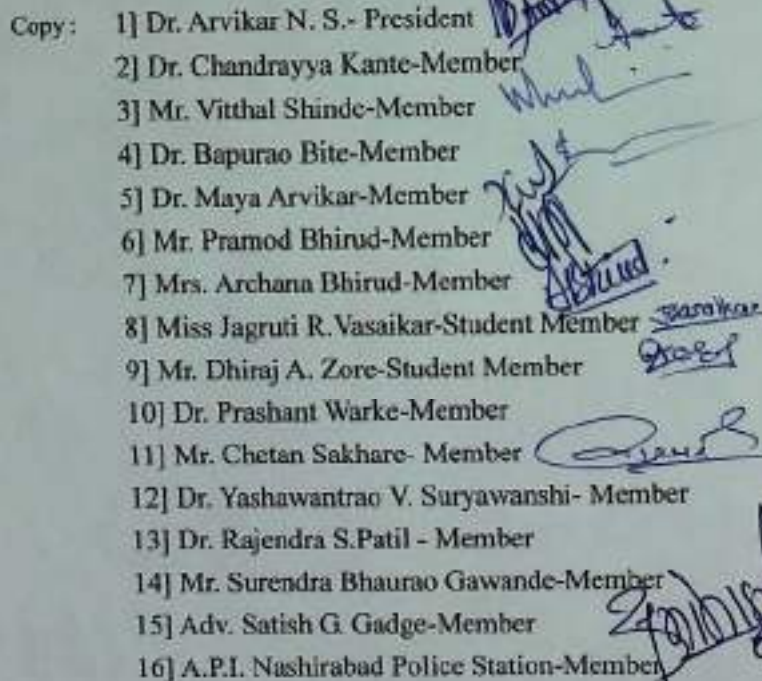 Copy: 1] Dr. Arvikar N. S.- President
2] Dr. Chandrayya Kante-Member
3] Mr. Vitthal Shinde-Member
4] Dr. Bapurao Bite-Member
5] Dr. Maya Arvikar-Member
6] Mr. Pramod Bhirud-Member
7] Mrs. Archana Bhirud-Member
8] Miss Jagruti R. Vasaikar-Student Member
9] Mr. Dhiraj A. Zore-Student Member
10] Dr. Prashant Warke-Member
11] Mr. Chetan Sakhare- Member
12] Dr. Yashawantrao V. Suryawanshi- Member
13] Dr. Rajendra S.Patil - Member
14] Mr. Surendra Bhaurao Gawande-Member
15] Adv. Satish G. Gadge-Member
16] A.P.I. Nashirabad Police Station-Member